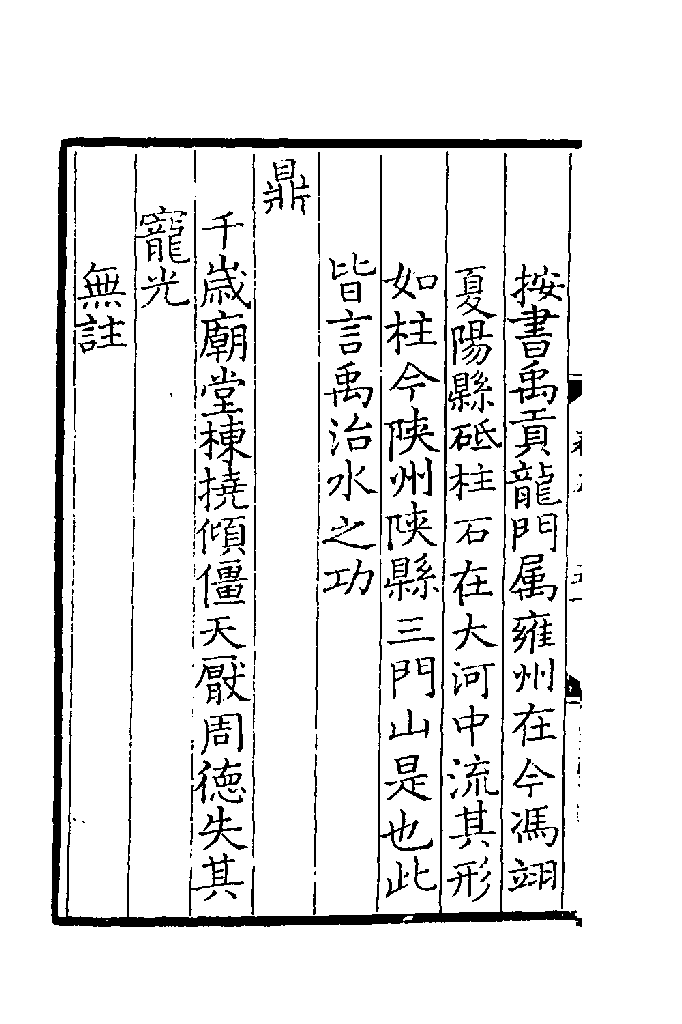 按書禹貢龍門属雍州在今馮翊
夏陽縣砥柱石在大河中流其形
如柱今陝州陝縣三門山是也此
皆言禹治水之功
鼎
千歳廟堂棟撓傾僵天厭周徳失其
寵光
無註